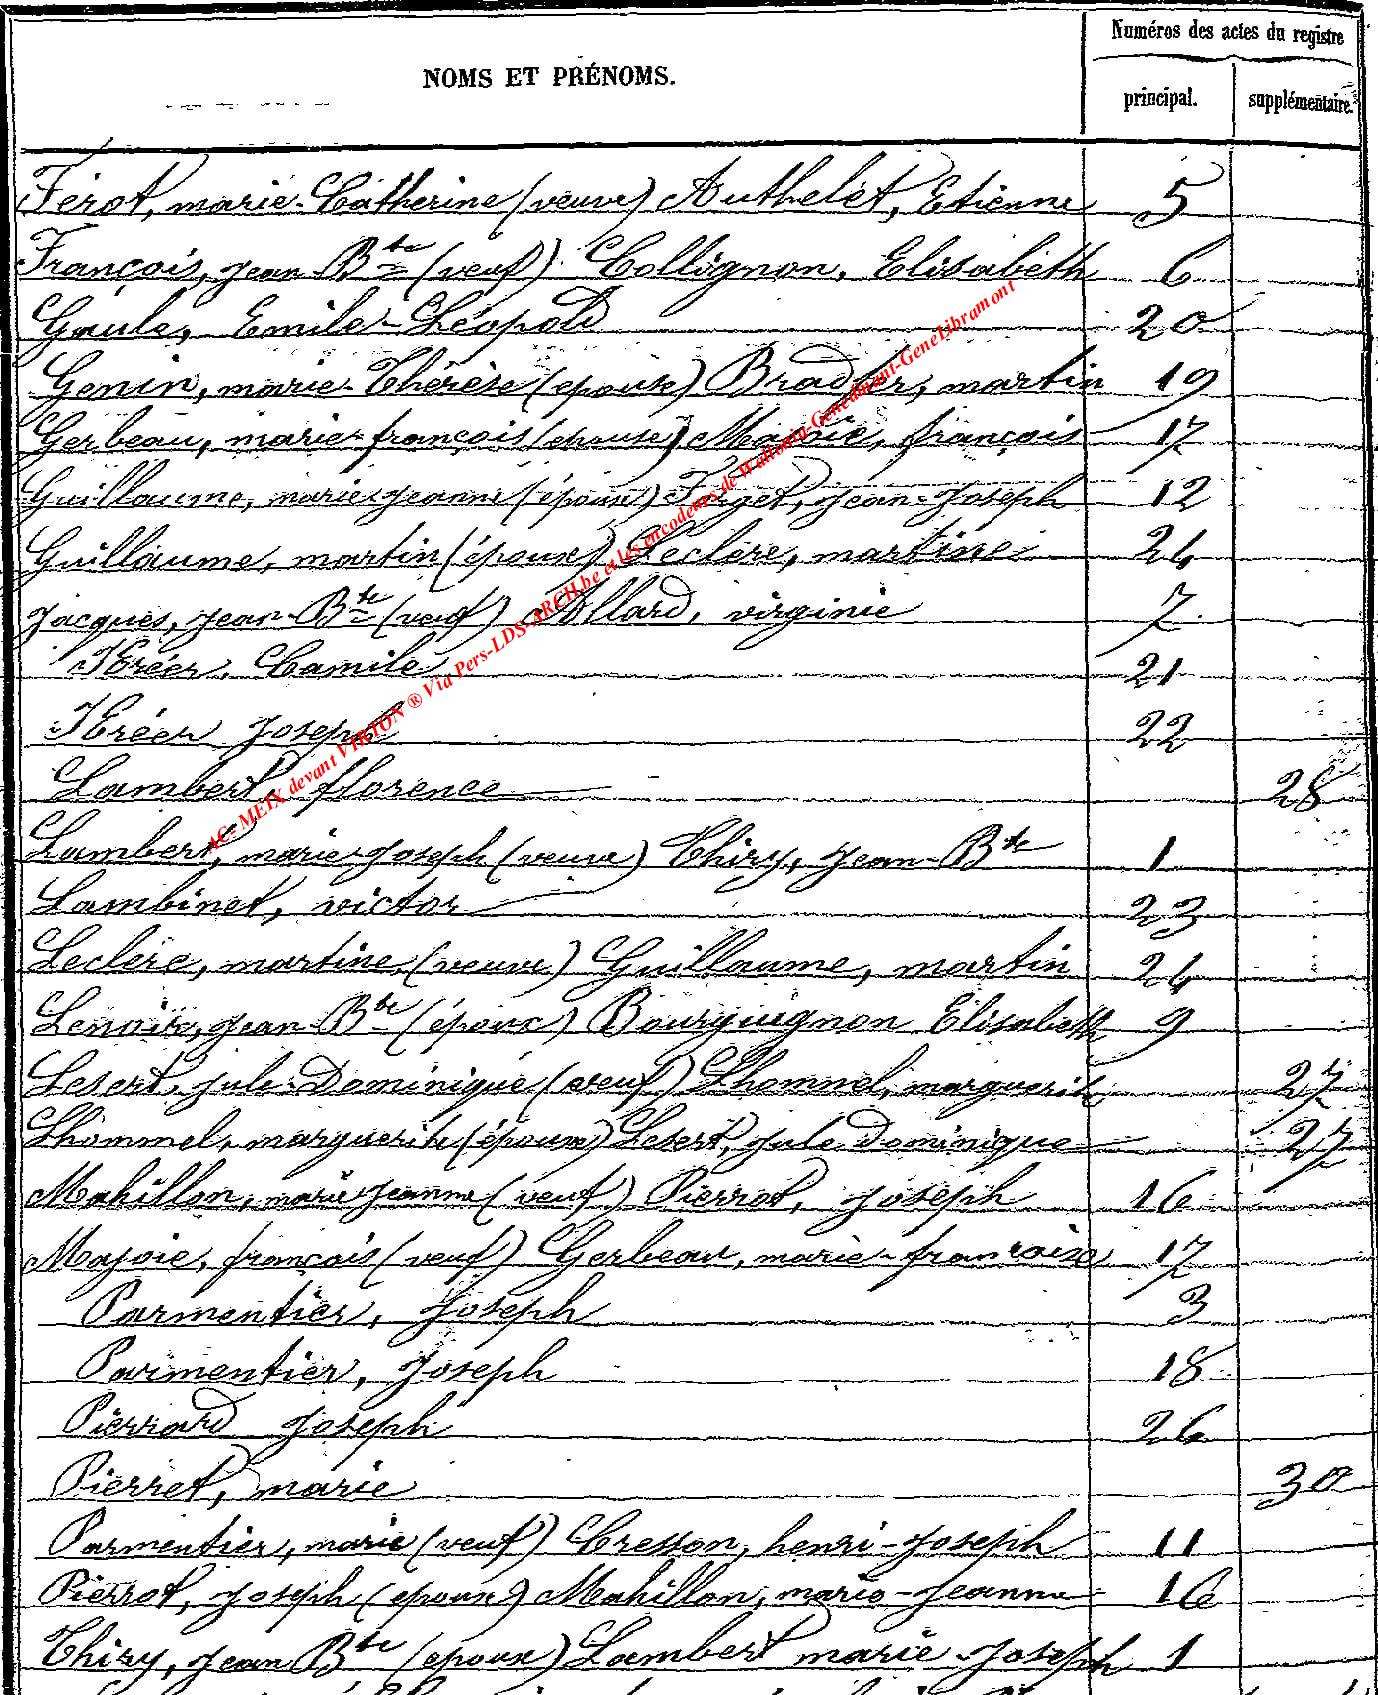 Numéros des actes du registre
NOMS ET PRÉNOMS.
principal. supplémentaire.
Férot, marie-Catherine (veuve) Authelet, Etienne 5
François, jean Bte (veuf) Collignon, Elisabeth 6
Gaule, Emile-Léopold 20
Genin, marie-Thérèse (epouse) Bradfer, martin 19
Gerbeau, marie-françois (epouse) Majoie, françois 17
Guillaume, marie-jeanne (épouse) jean-joseph 12
Guillaume, martin (époux) Leclère, martine 24
jacques, jean-Bte (veuf) Allard, virginie 7
Kréer, Camile 21
Kréer joseph 22
Lambert, florence 28
Lambert, marie-joseph (veuve) Thiry, jean-Bte 1
Lambinet, victor 23
Leclère, martine, (veuve) Guillaume, martin 24
Lenoir, jean-Bte (époux) Bourguignon Elisabeth 9
Lesert, jule-Dominique (veuf) Lhommel, marguerite 27
Lhommel, marguerite (épouse) Lesert, jule Dominique 27
Mahillon, marie jeanne (veuf) Pierrot, joseph 16
Majoie, françois (veuf) Gerbeau, marie-françoise 17
Parmentier, joseph 3
Parmentier, joseph 18
Pierrard joseph 26
Pierret, marie 30
Parmentier, marie (veuf) Cresson, henri-joseph 11
Pierrot, joseph (epoux) Mahillon, marie-jeanne 16
Thiry, jean Bte (epoux) Lambert marie-joseph 1
AC- METX devant VIRTON ® Via Pers-LDS-ARCH.be et les encodeurs de Wallonia-Genedinant-GeneLibramont